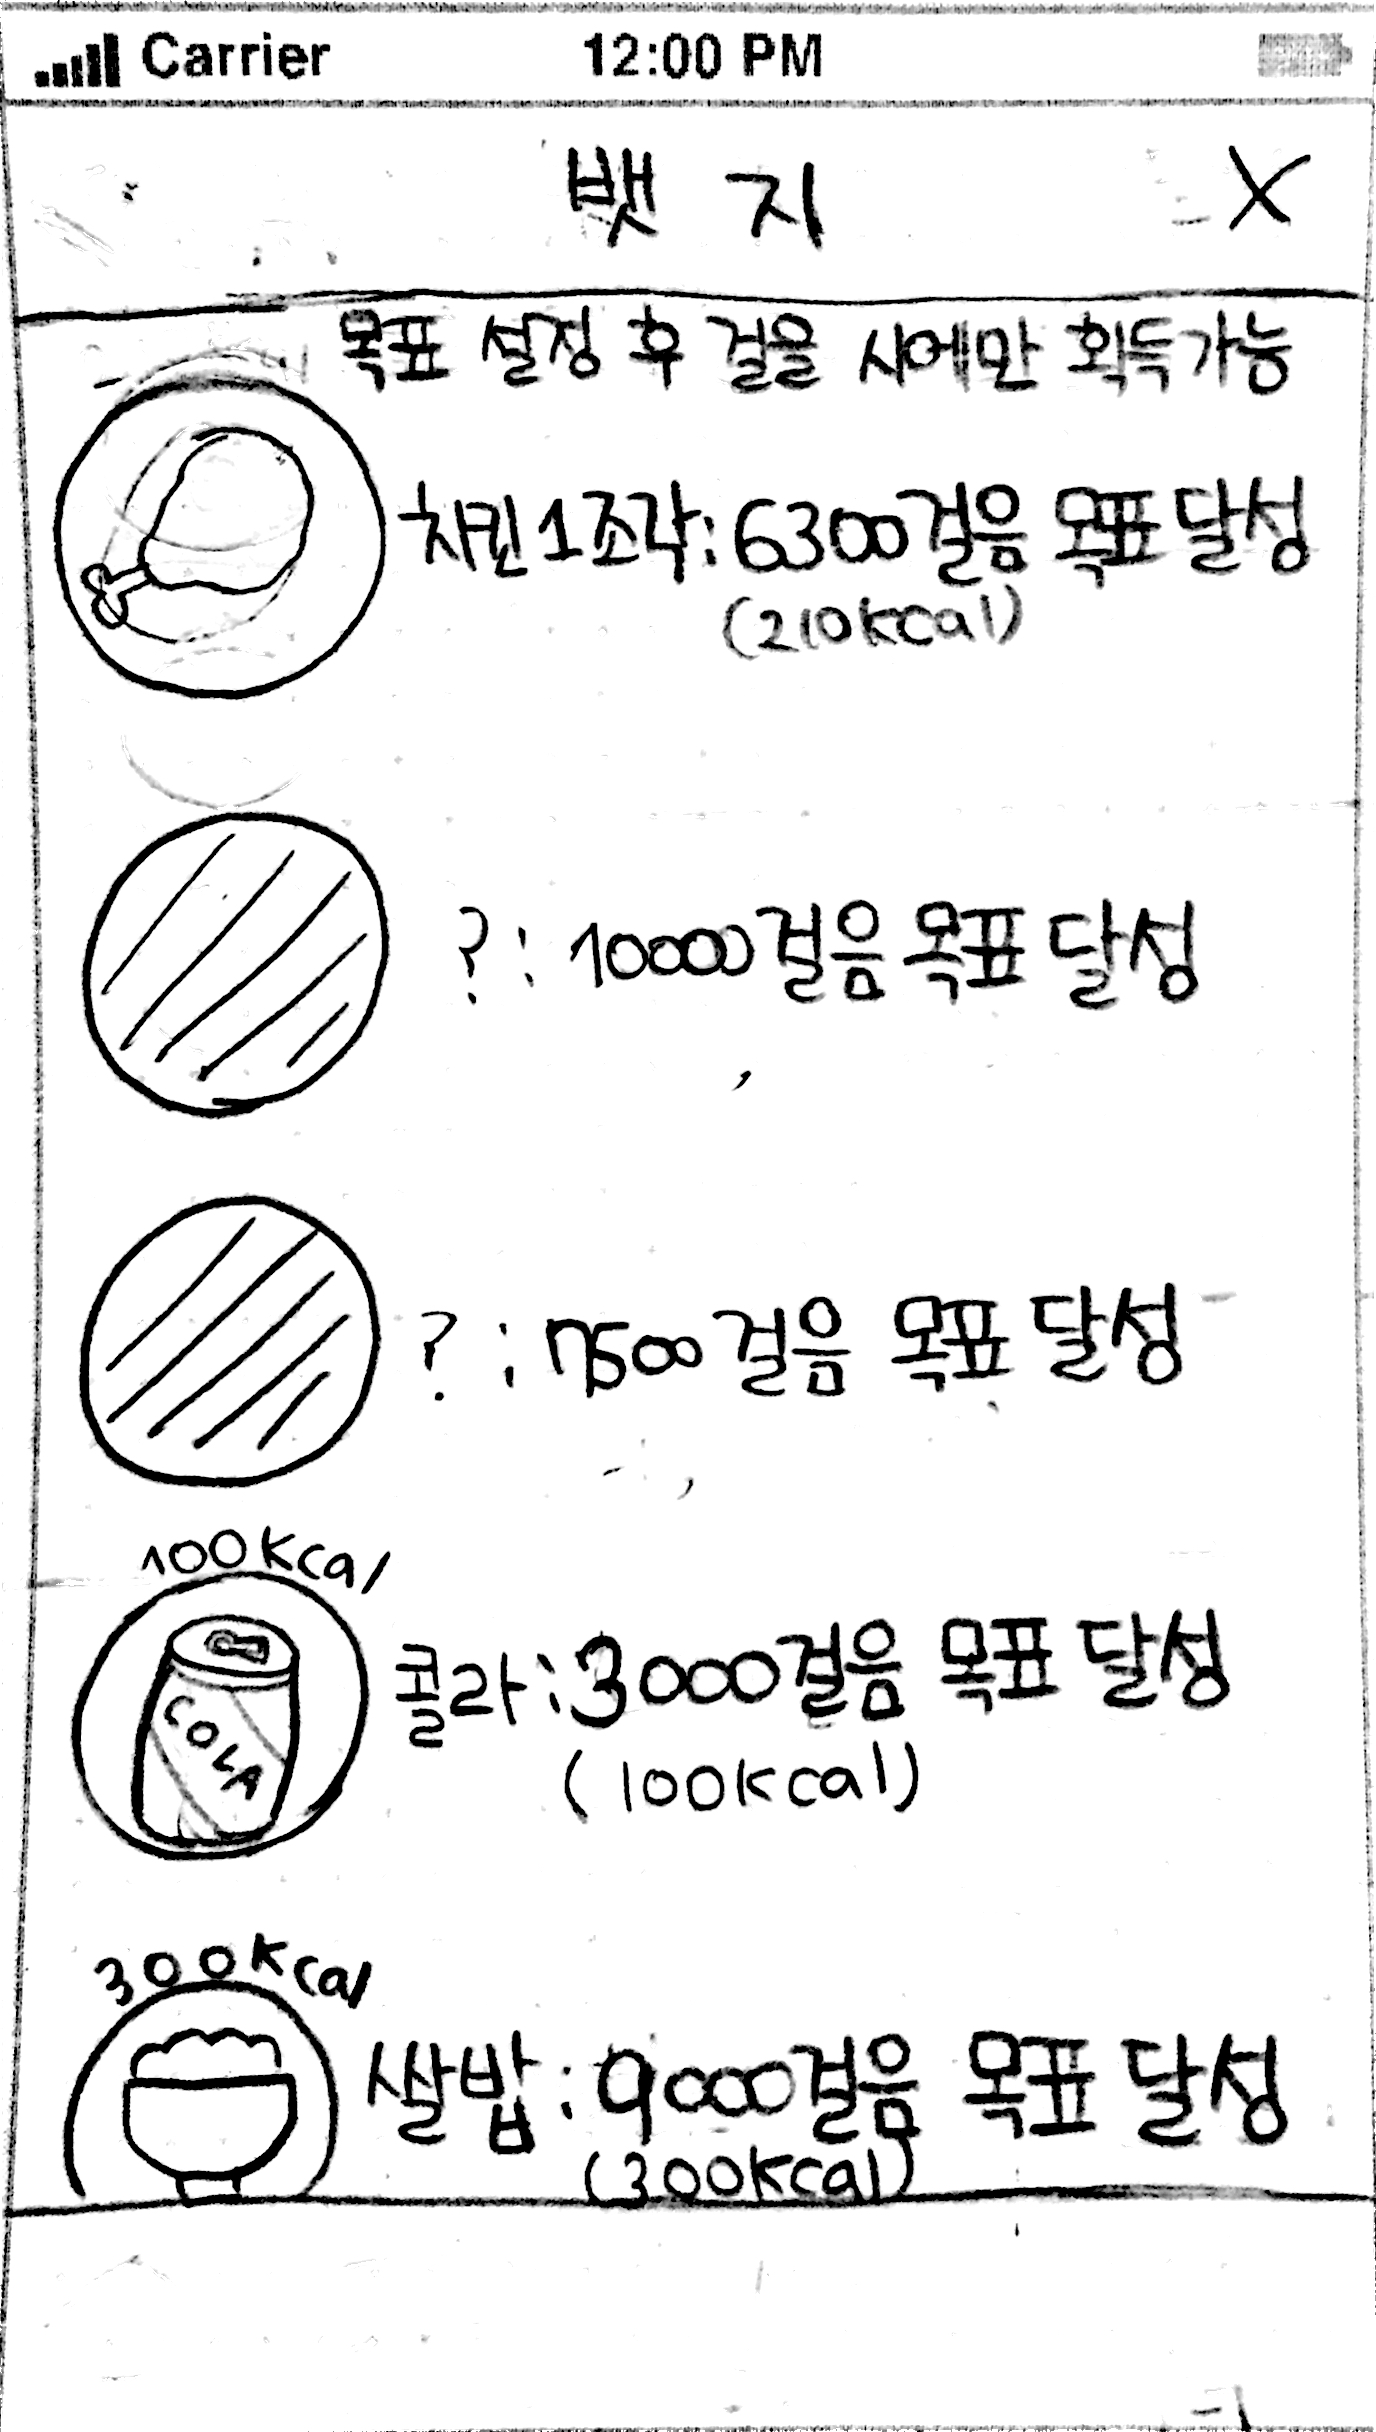 Carrier 12:00 PM
뱃지 X
목표 설정 후 걸을 시에만 획득가능
치킨 1조각: 6300걸음 목표 달성
(210kcal)
?: 10000걸음 목표 달성
?: 7500걸음 목표 달성
100Kcal
COLA
콜라: 3000걸음 목표 달성
(100kcal)
300Kcal
쌀밥: 9000걸음 목표 달성
(300kcal)